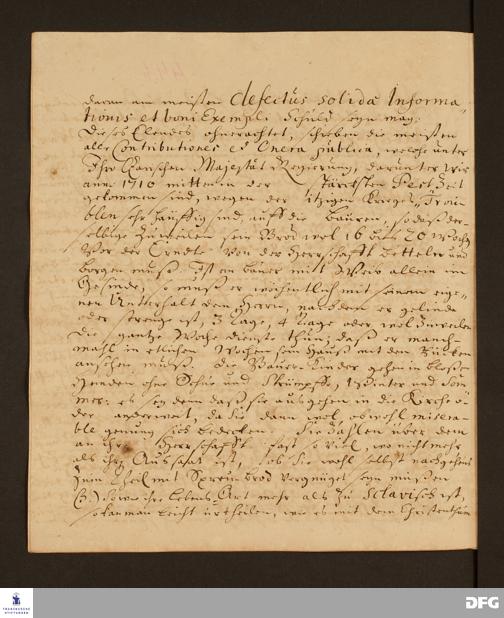 daran am meisten defectus solidae Informa-
tionis et boni Exempli Schuld seyn mag.
Dieses Elendes ohnerachtet, schieben die meisten
alle Contributiones et Onera publica, welche unter
Ihro Czarischen Majestät Regierung, darunter wir
anno 1710 mitten in der stärcksten Pest Zeit
gekommen sind, wegen der itzigen Krieges Trou-
blen sehr häuffig sind, auff die Bauren, so daß der-
selbige zuweilen sein Brod wol 16 bis 20 Wochen
vor der Erndte von der Herrschafft betteln und
borgen muß. Ist ein bauer mit Weib allein im
Gesinde, so muß er wöchentlich mit seinem eige-
nen Unterhalt dem Herrn, nachdem er gelinde
oder strenge ist, 3 Tage, 4 Tage oder wol zuweilen
die gantze Woche dienste thun, daß er manch-
mahl in etlichen Wochen sein Hauß mit dem Rücken
ansehen muß. die Bauer-Kinder gehen in bloßen
Hemden ohne Schue und Strümpffe, Winter und Som
mer: es sey denn daß sie ausgehen in die Kirche o-
der anderwert, da sie dann wol, obwohl misera-
ble genung sich bedecken. Sie zahlen über dem
an ihre Herrschafft fast so viel, wo nicht mehr
als ihre Aussaat ist, ob sie wohl selbst nachgehends
zum theil mit Spreu brod vergnüget seyn müssen
(3.) So wie ihre Lebens-Art mehr als zu Sclavisch ist,
so kan man leicht urtheilen, wie es mit dem Christenthum
FRANCKESCHE
STIFTUNGEN
DFG